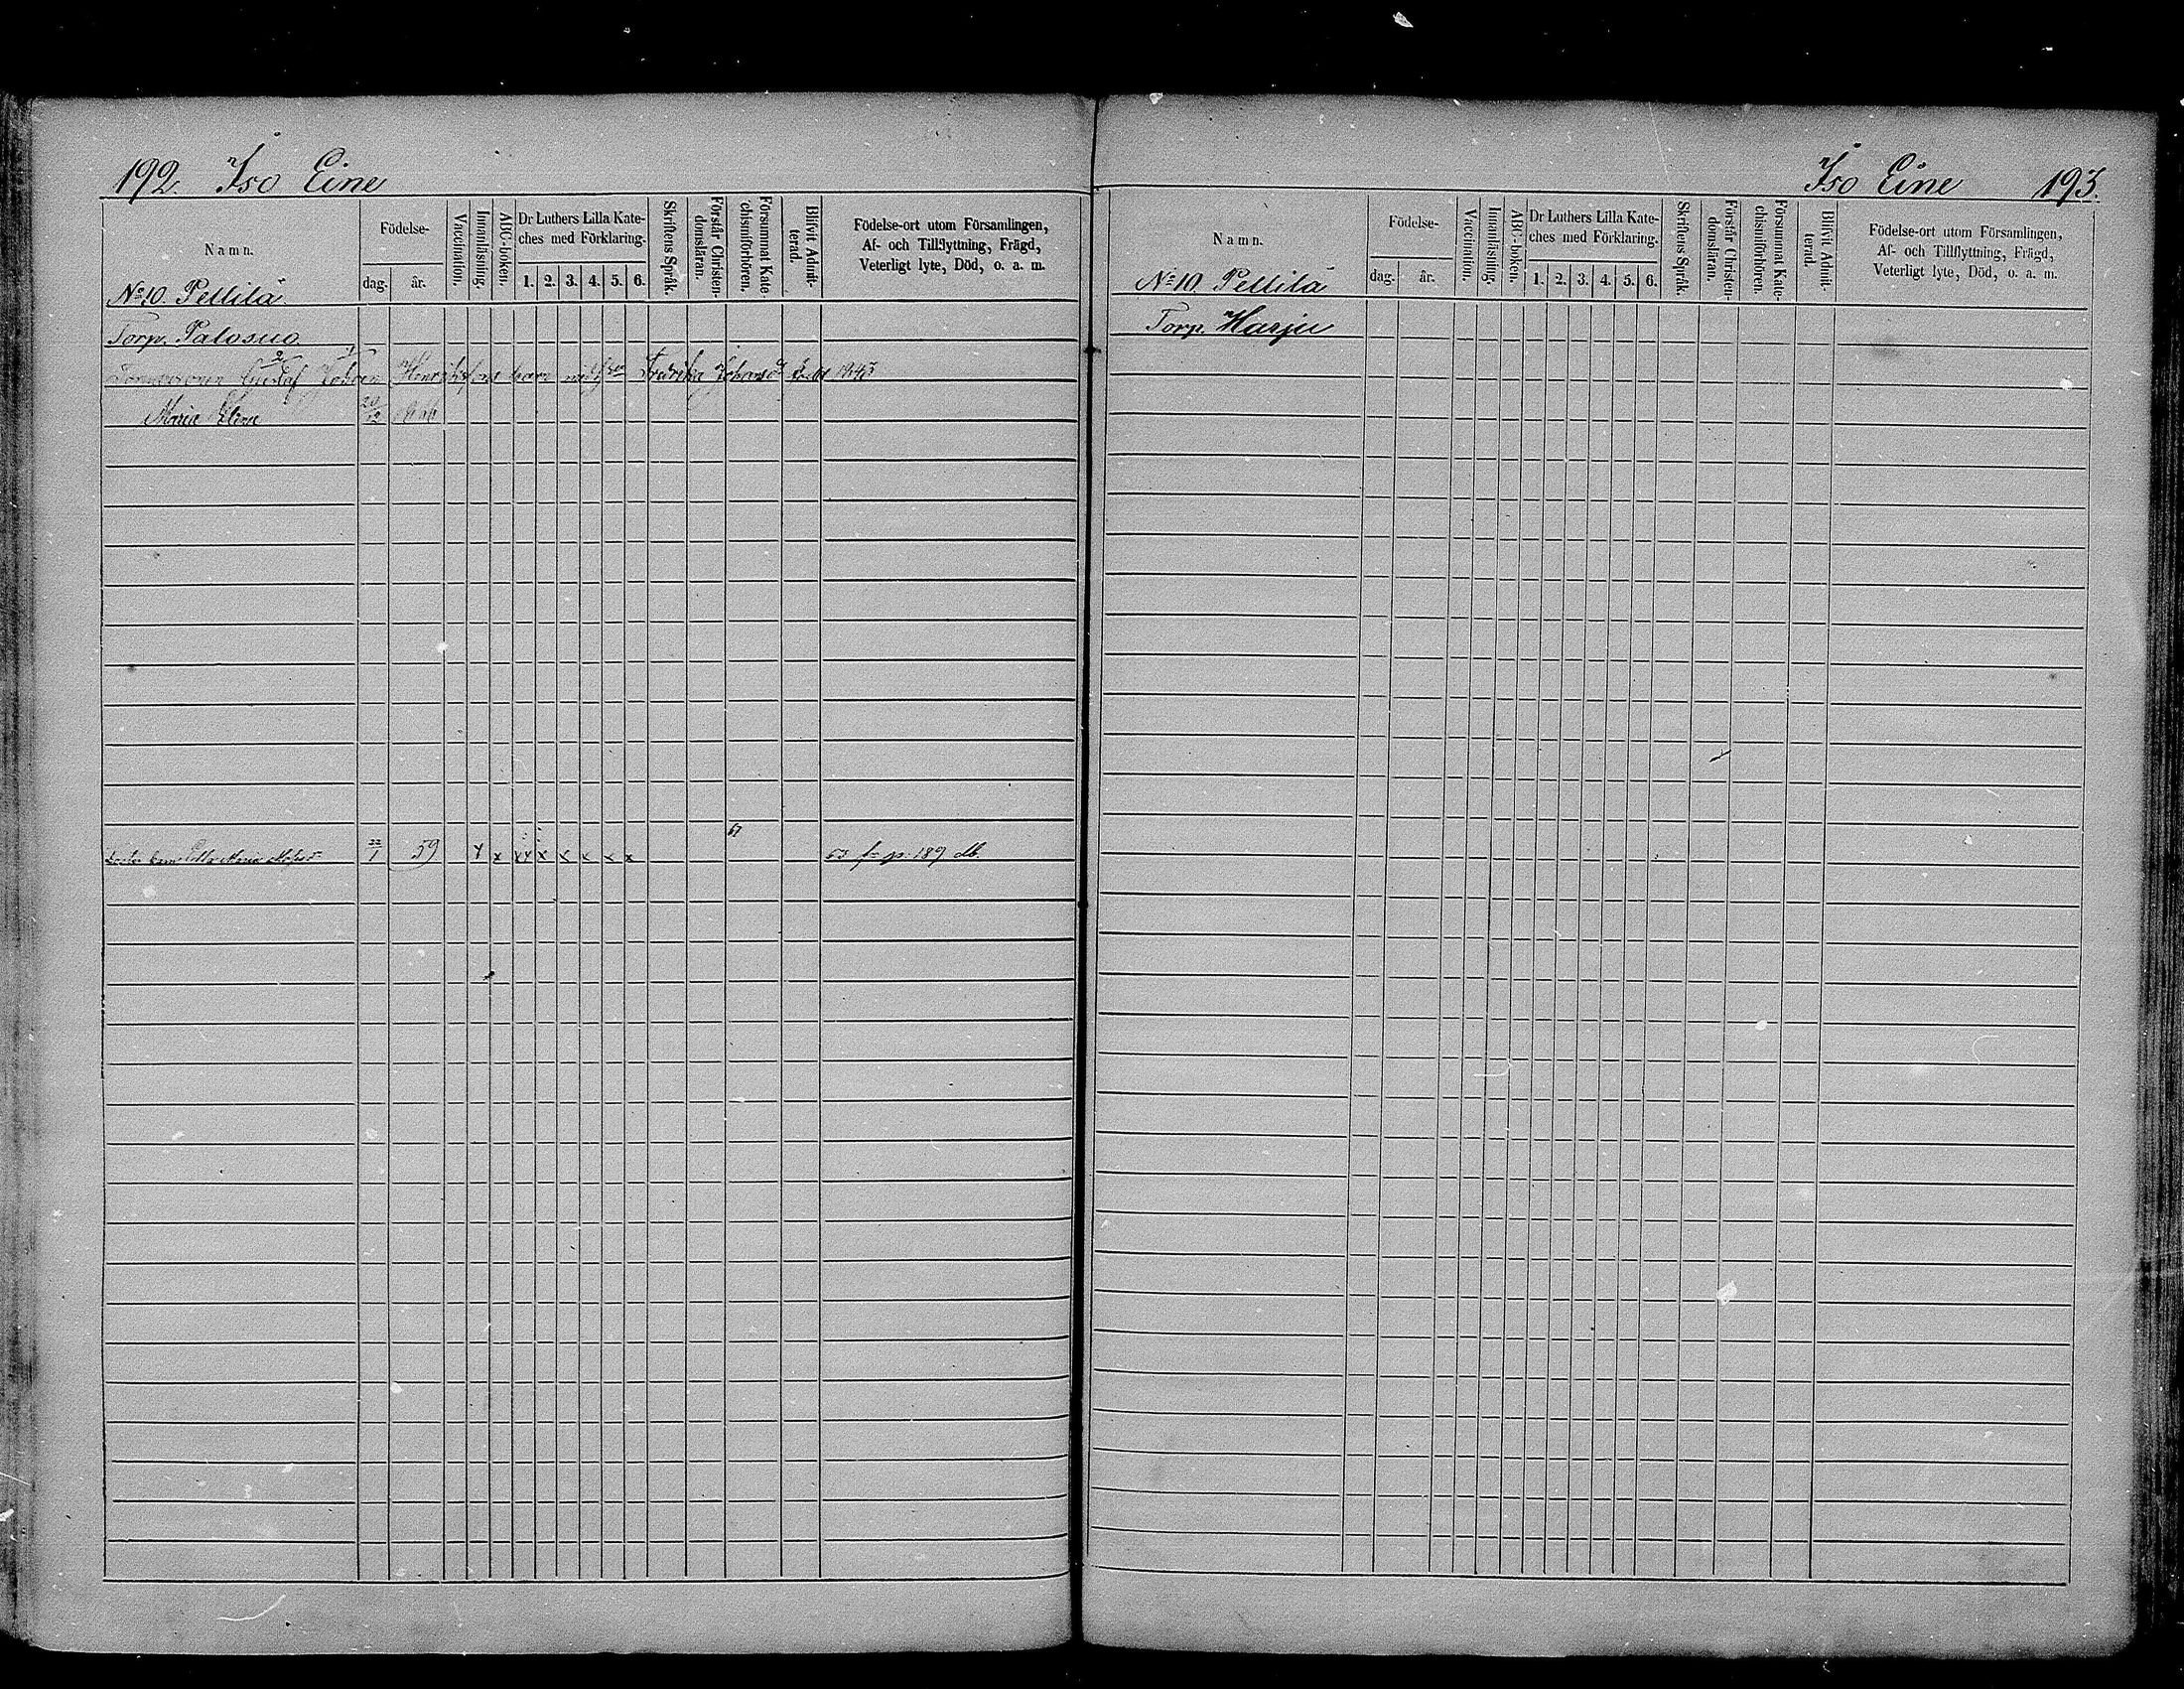 192. Iso Eine
Namn.
Födelse-
dag.
år.
Vaccination.
Innanläsning.
ABC-boken.
Dr Luthers Lilla Kate-
ches med Förklaring.
1. 2. 3. 4. 5. 6.
Skriftens Språk.
Förstår Christen-
domsläran.
Försummat Kate-
chismiförhören.
Blifvit Admit-
terad.
Födelse-ort utom Församlingen,
Af- och Tillflyttning, Frägd,
Veterligt lyte, Död, o. a. m.
No 10. Pellilä
Torp. Palosuo
Gustaf barn med Fredrika 1843
Maria Elina
Maria 22/1 59 x x x x x x x x 67 63 fr p. 189 db.
Iso Eine 193.
Namn.
Födelse-
dag.
år.
Vaccination.
Innanläsning.
ABC-boken.
Dr Luthers Lilla Kate-
ches med Förklaring.
1. 2. 3. 4. 5. 6.
Skriftens Språk.
Förstår Christen-
domsläran.
Försummat Kate-
chismiförhören.
Blifvit Admit-
terad.
Födelse-ort utom Församlingen,
Af- och Tillflyttning, Frägd,
Veterligt lyte, Död, o. a. m.
No 10 Pellilä
Torp. Harju